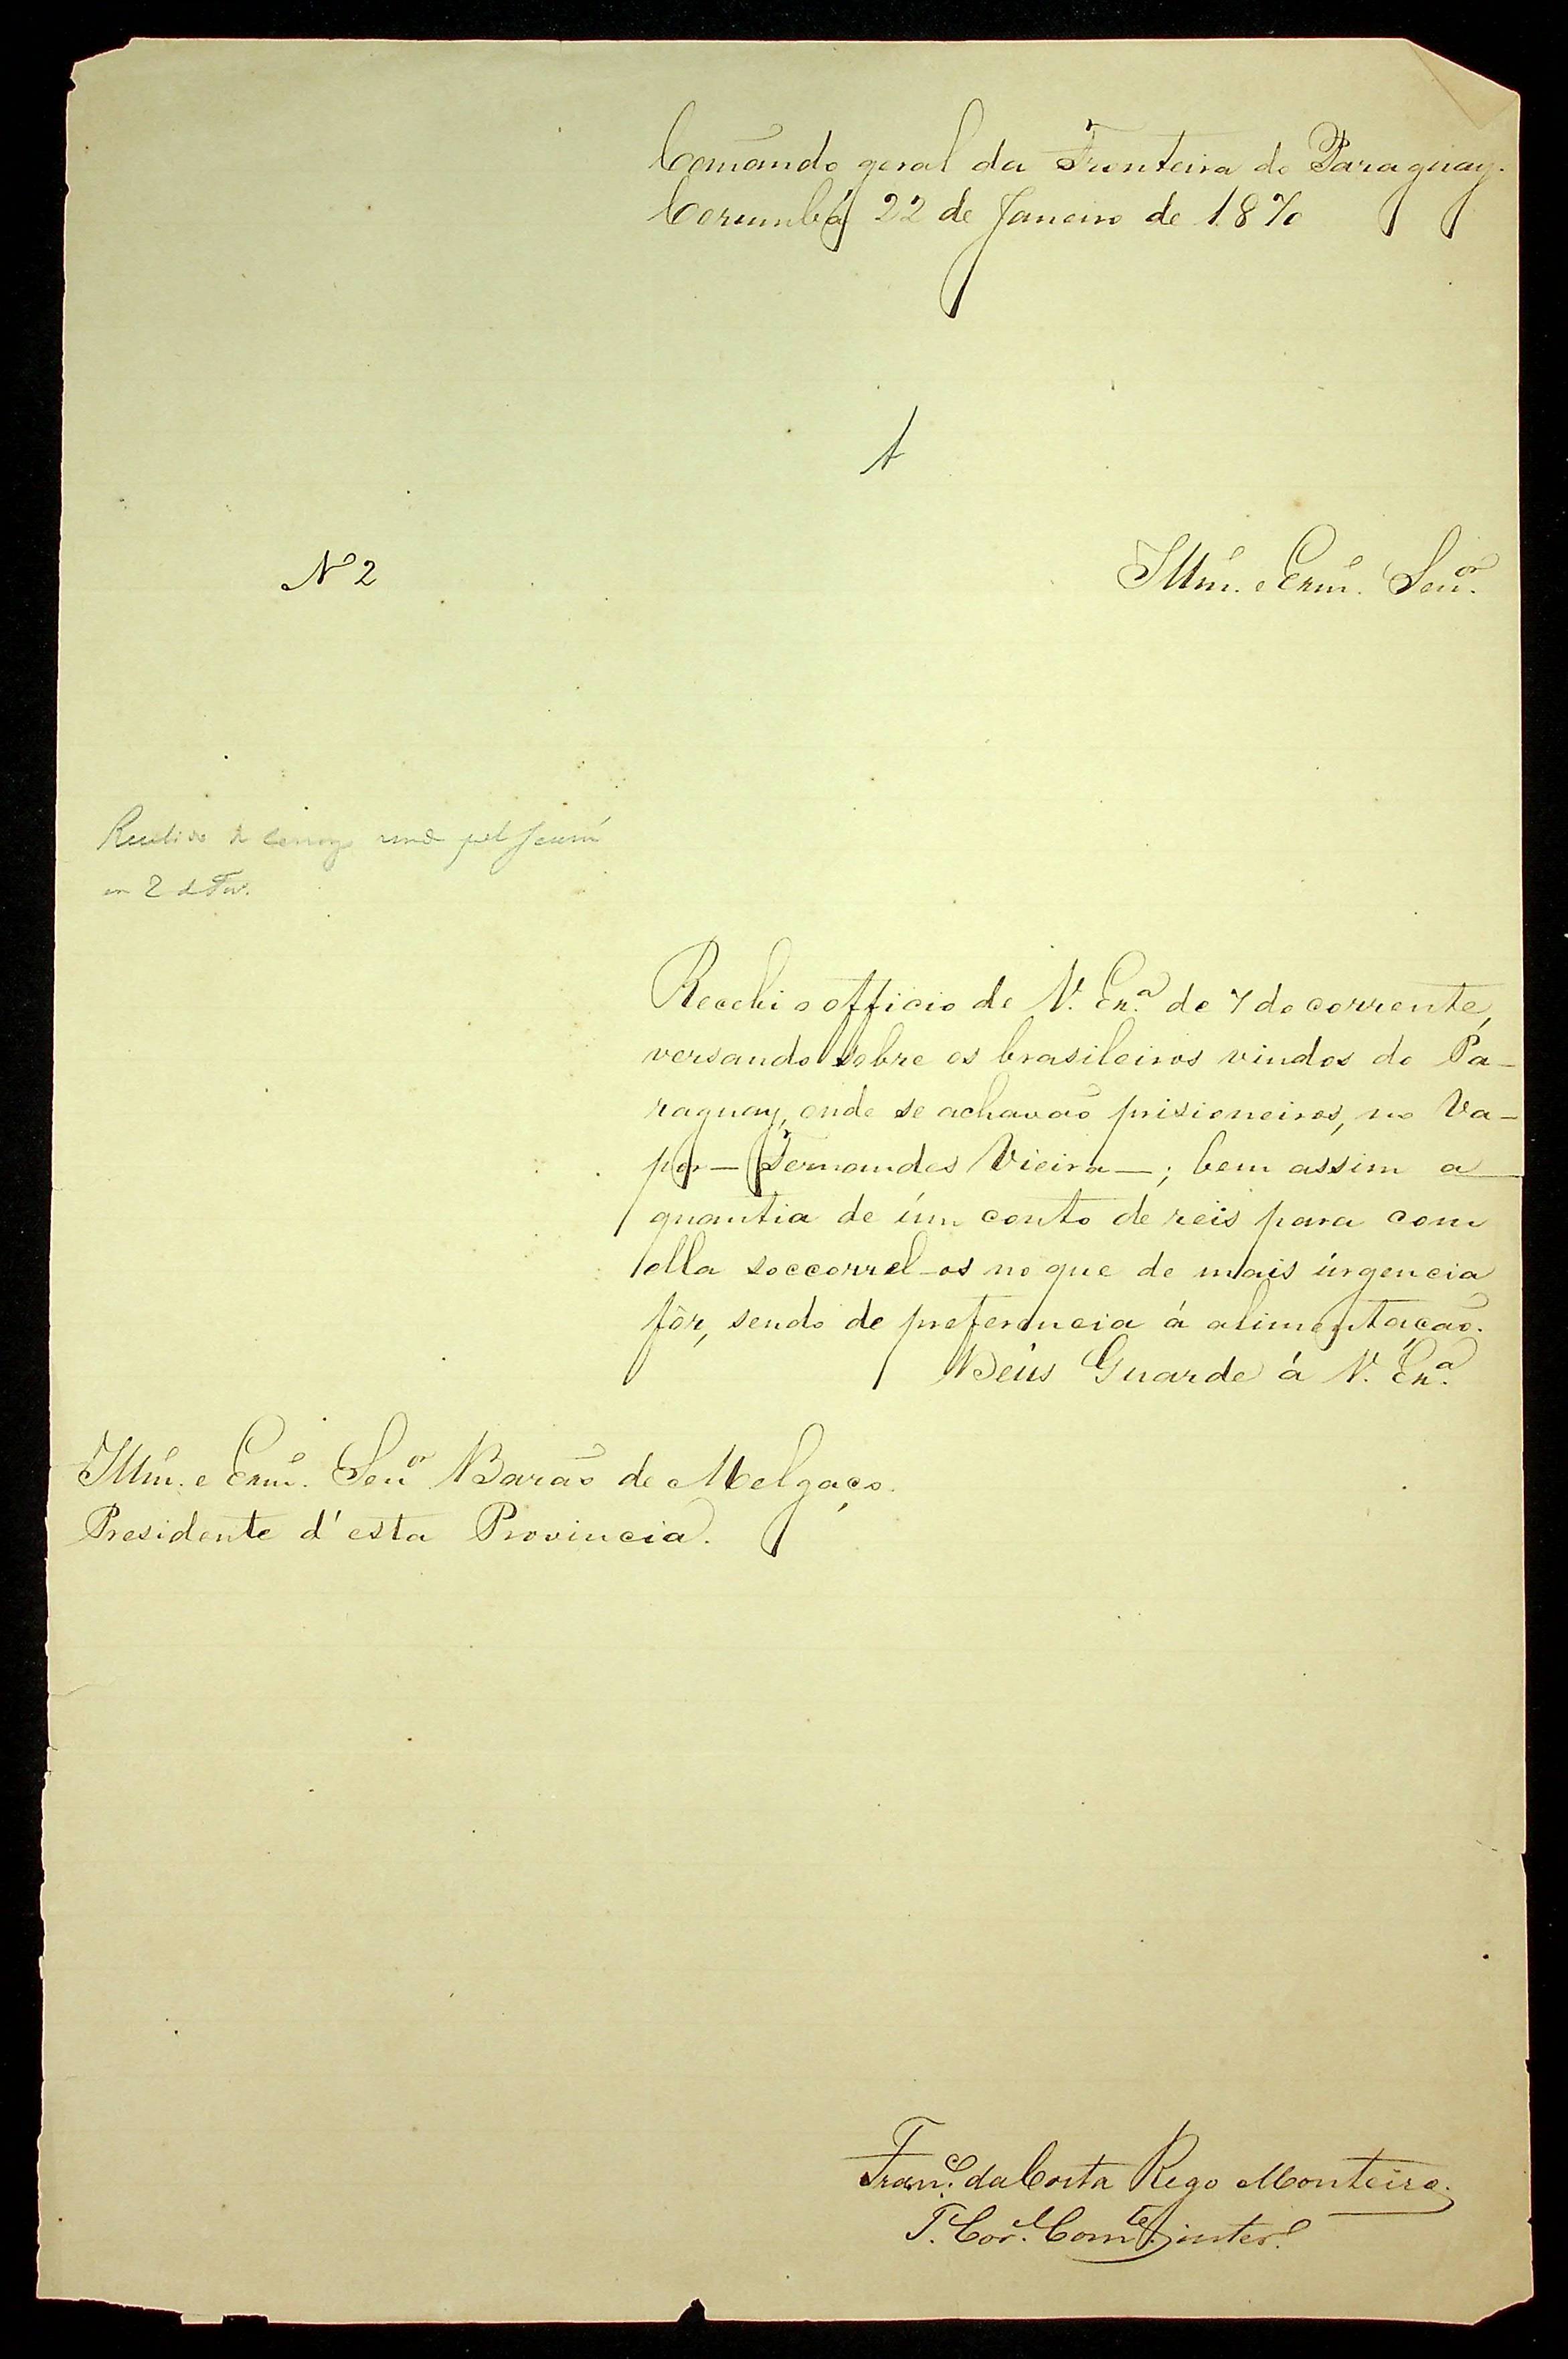 Comando geral da Fronteira do Paraguay.
Corumbá 22 de Janeiro de 1870
A
Nº 2
Illmº. e Exmº. Senºr.
em 2 de Fev.
Recebi o officio de V. Exª. de 7 do corrente,
versando sobre os brasileiros vindos do Pa-
raguay, onde se achavaõ prisioneiros, no Va-
por — Fernandes Vieira —; bem assim a
quantia de úm conto de reis para com
ella soccorrel-os no que de mais úrgencia
fôr, sendo de preferencia á alimentaçaõ.
Deús Guarde á V. Exª.
Illmº. e Exmº. Senºr Baraõ de Melgaço.
Presidente d'esta Provincia.
Franco. da Costa Rego Monteiro.
T. Corel. Comte. intero.